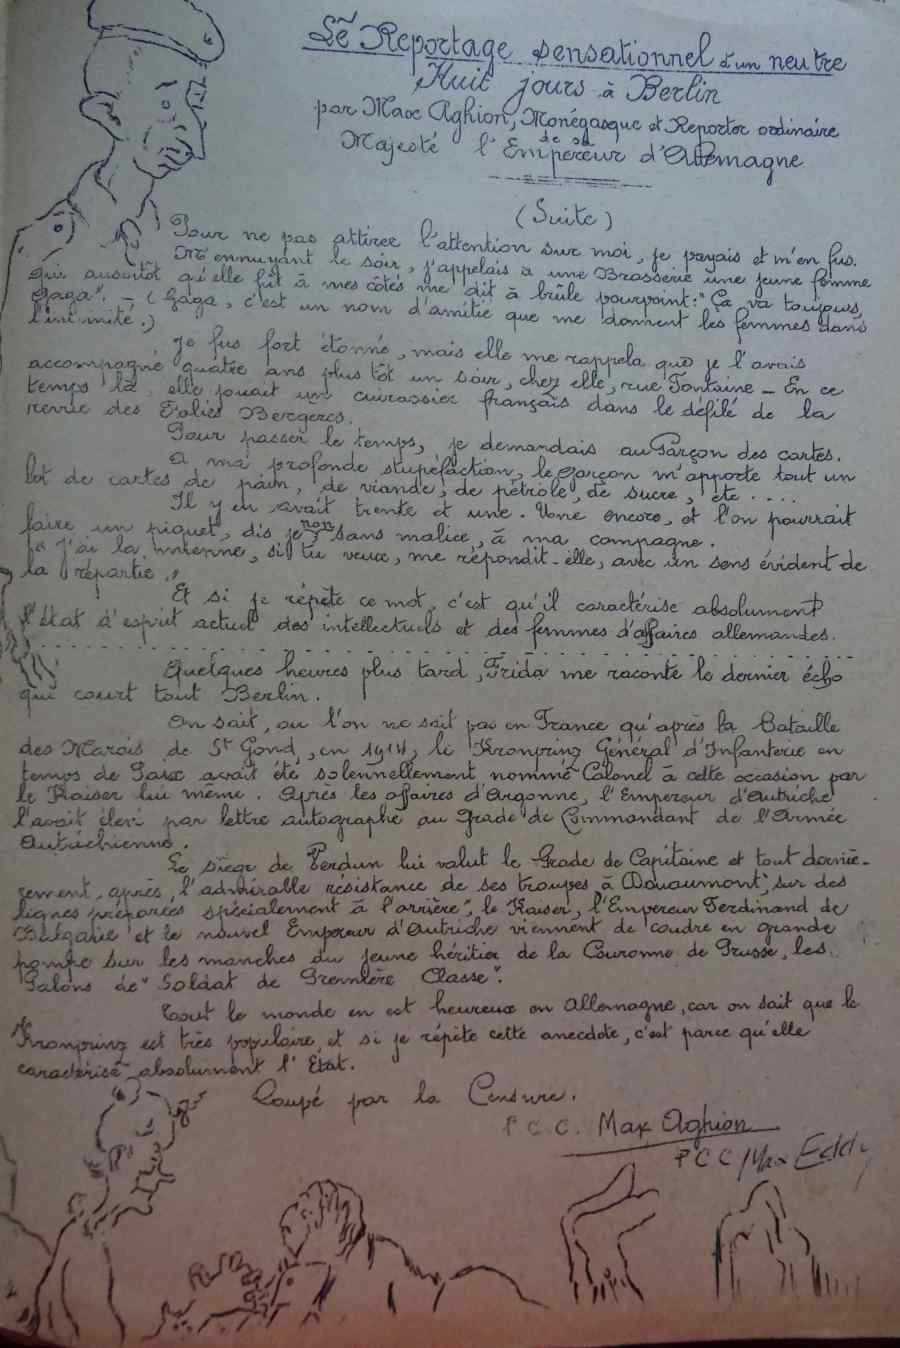 Le Reportage sensationnel d'un neutre
Huit jours à Berlin
par Max Aghion, Monégasque et Reporter ordinaire
de sa
Majesté l'Empereur d'Allemagne
(Suite)
Pour ne pas attirer l'attention sur moi, je payais et m'en fus.
M'ennuyant le soir, j'appelais à une Brasserie une jeune femme
qui aussitôt qu'elle fût à mes côtés me dit à brûle pourpoint: "Ça va toujours,
Gaga". - (Gaga, c'est un nom d'amitié que me donnent les femmes dans
l'intimité.)
Je fus fort étonné, mais elle me rappela que je l'avais
accompagné quatre ans plus tôt un soir, chez elle, rue Fontaine - En ce
temps là, elle jouait un cuirassier français dans le défilé de la
revue des Folies Bergères.
Pour passer le temps, je demandais au Garçon des cartes.
A ma profonde stupéfaction, le garçon m'apporte tout un
lot de cartes de pain, de viande, de pétrole, de sucre, etc ....
Il y en avait trente et une. Une encore, et l'on pourrait
faire un piquet, dis je, non sans malice, à ma compagne.
"J'ai la mienne, si tu veux, me répondit-elle, avec un sens évident de
la répartie."
Et si je répète ce mot, c'est qu'il caractérise absolument
l'état d'esprit actuel des intellectuels et des femmes d'affaires allemandes.
Quelques heures plus tard, Frida me raconte le dernier écho
qui court tout Berlin.
On sait, ou l'on ne sait pas en France qu'après la Bataille
des Marais de St Gond, en 1914, le Kronprinz Général d'Infanterie en
temps de Paix avait été solennellement nommé Colonel à cette occasion par
le Kaiser lui même. Après les affaires d'Argonne, l'Empereur d'Autriche
l'avait élevé par lettre autographe au Grade de Commandant de l'Armée
Autrichienne.
Le siège de Verdun lui valut le Grade de Capitaine et tout derniè-
rement, après l'admirable résistance de ses troupes à Douaumont, "sur des
lignes préparées spécialement à l'arrière", le Kaiser, l'Empereur Ferdinand de
Bulgarie et le nouvel Empereur d'Autriche viennent de coudre en grande
pompe sur les manches du jeune héritier de la Couronne de Prusse, les
Galons de "Soldat de Première Classe".
Tout le monde en est heureux en Allemagne, car on sait que le
Kronprinz est très populaire, et si je répète cette anecdote, c'est parce qu'elle
caractérise absolument l'Etat.
Coupé par la Censure.
P.C.C. Max Aghion
P C C Max Eddy